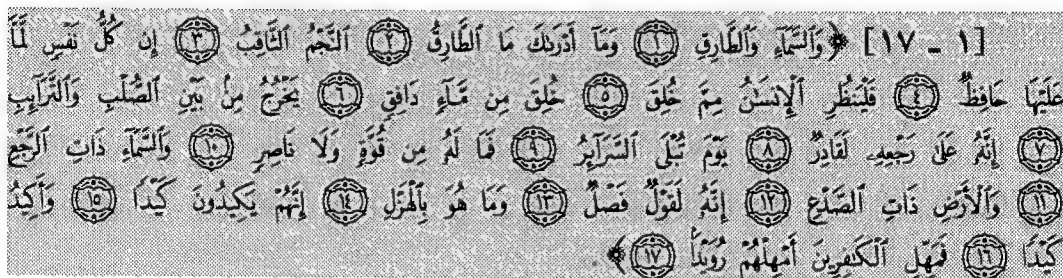 [١ - ١٧] ﴿وَالسَّمَآءِ وَالطَّارِقِ ﴿١﴾ وَمَآ أَدْرَىٰكَ مَا الطَّارِقُ ﴿٢﴾ النَّجْمُ الثَّاقِبُ ﴿٣﴾ إِن كُلُّ نَفْسٍ لَّمَّا
عَلَيْهَا حَافِظٌ ﴿٤﴾ فَلْيَنظُرِ ٱلْإِنسَٰنُ مِمَّ خُلِقَ ﴿٥﴾ خُلِقَ مِن مَّآءٍ دَافِقٍ ﴿٦﴾ يَخْرُجُ مِنۢ بَيْنِ ٱلصُّلْبِ وَٱلتَّرَآئِبِ
﴿٧﴾ إِنَّهُۥ عَلَىٰ رَجْعِهِۦ لَقَادِرٌ ﴿٨﴾ يَوْمَ تُبْلَى ٱلسَّرَآئِرُ ﴿٩﴾ فَمَا لَهُۥ مِن قُوَّةٍ وَلَا نَاصِرٍ ﴿١٠﴾ وَٱلسَّمَآءِ ذَاتِ ٱلرَّجْعِ
﴿١١﴾ وَٱلْأَرْضِ ذَاتِ ٱلصَّدْعِ ﴿١٢﴾ إِنَّهُۥ لَقَوْلٌ فَصْلٌ ﴿١٣﴾ وَمَا هُوَ بِٱلْهَزْلِ ﴿١٤﴾ إِنَّهُمْ يَكِيدُونَ كَيْدًا ﴿١٥﴾ وَأَكِيدُ
كَيْدًا ﴿١٦﴾ فَمَهِّلِ ٱلْكَٰفِرِينَ أَمْهِلْهُمْ رُوَيْدًۢا ﴿١٧﴾﴾